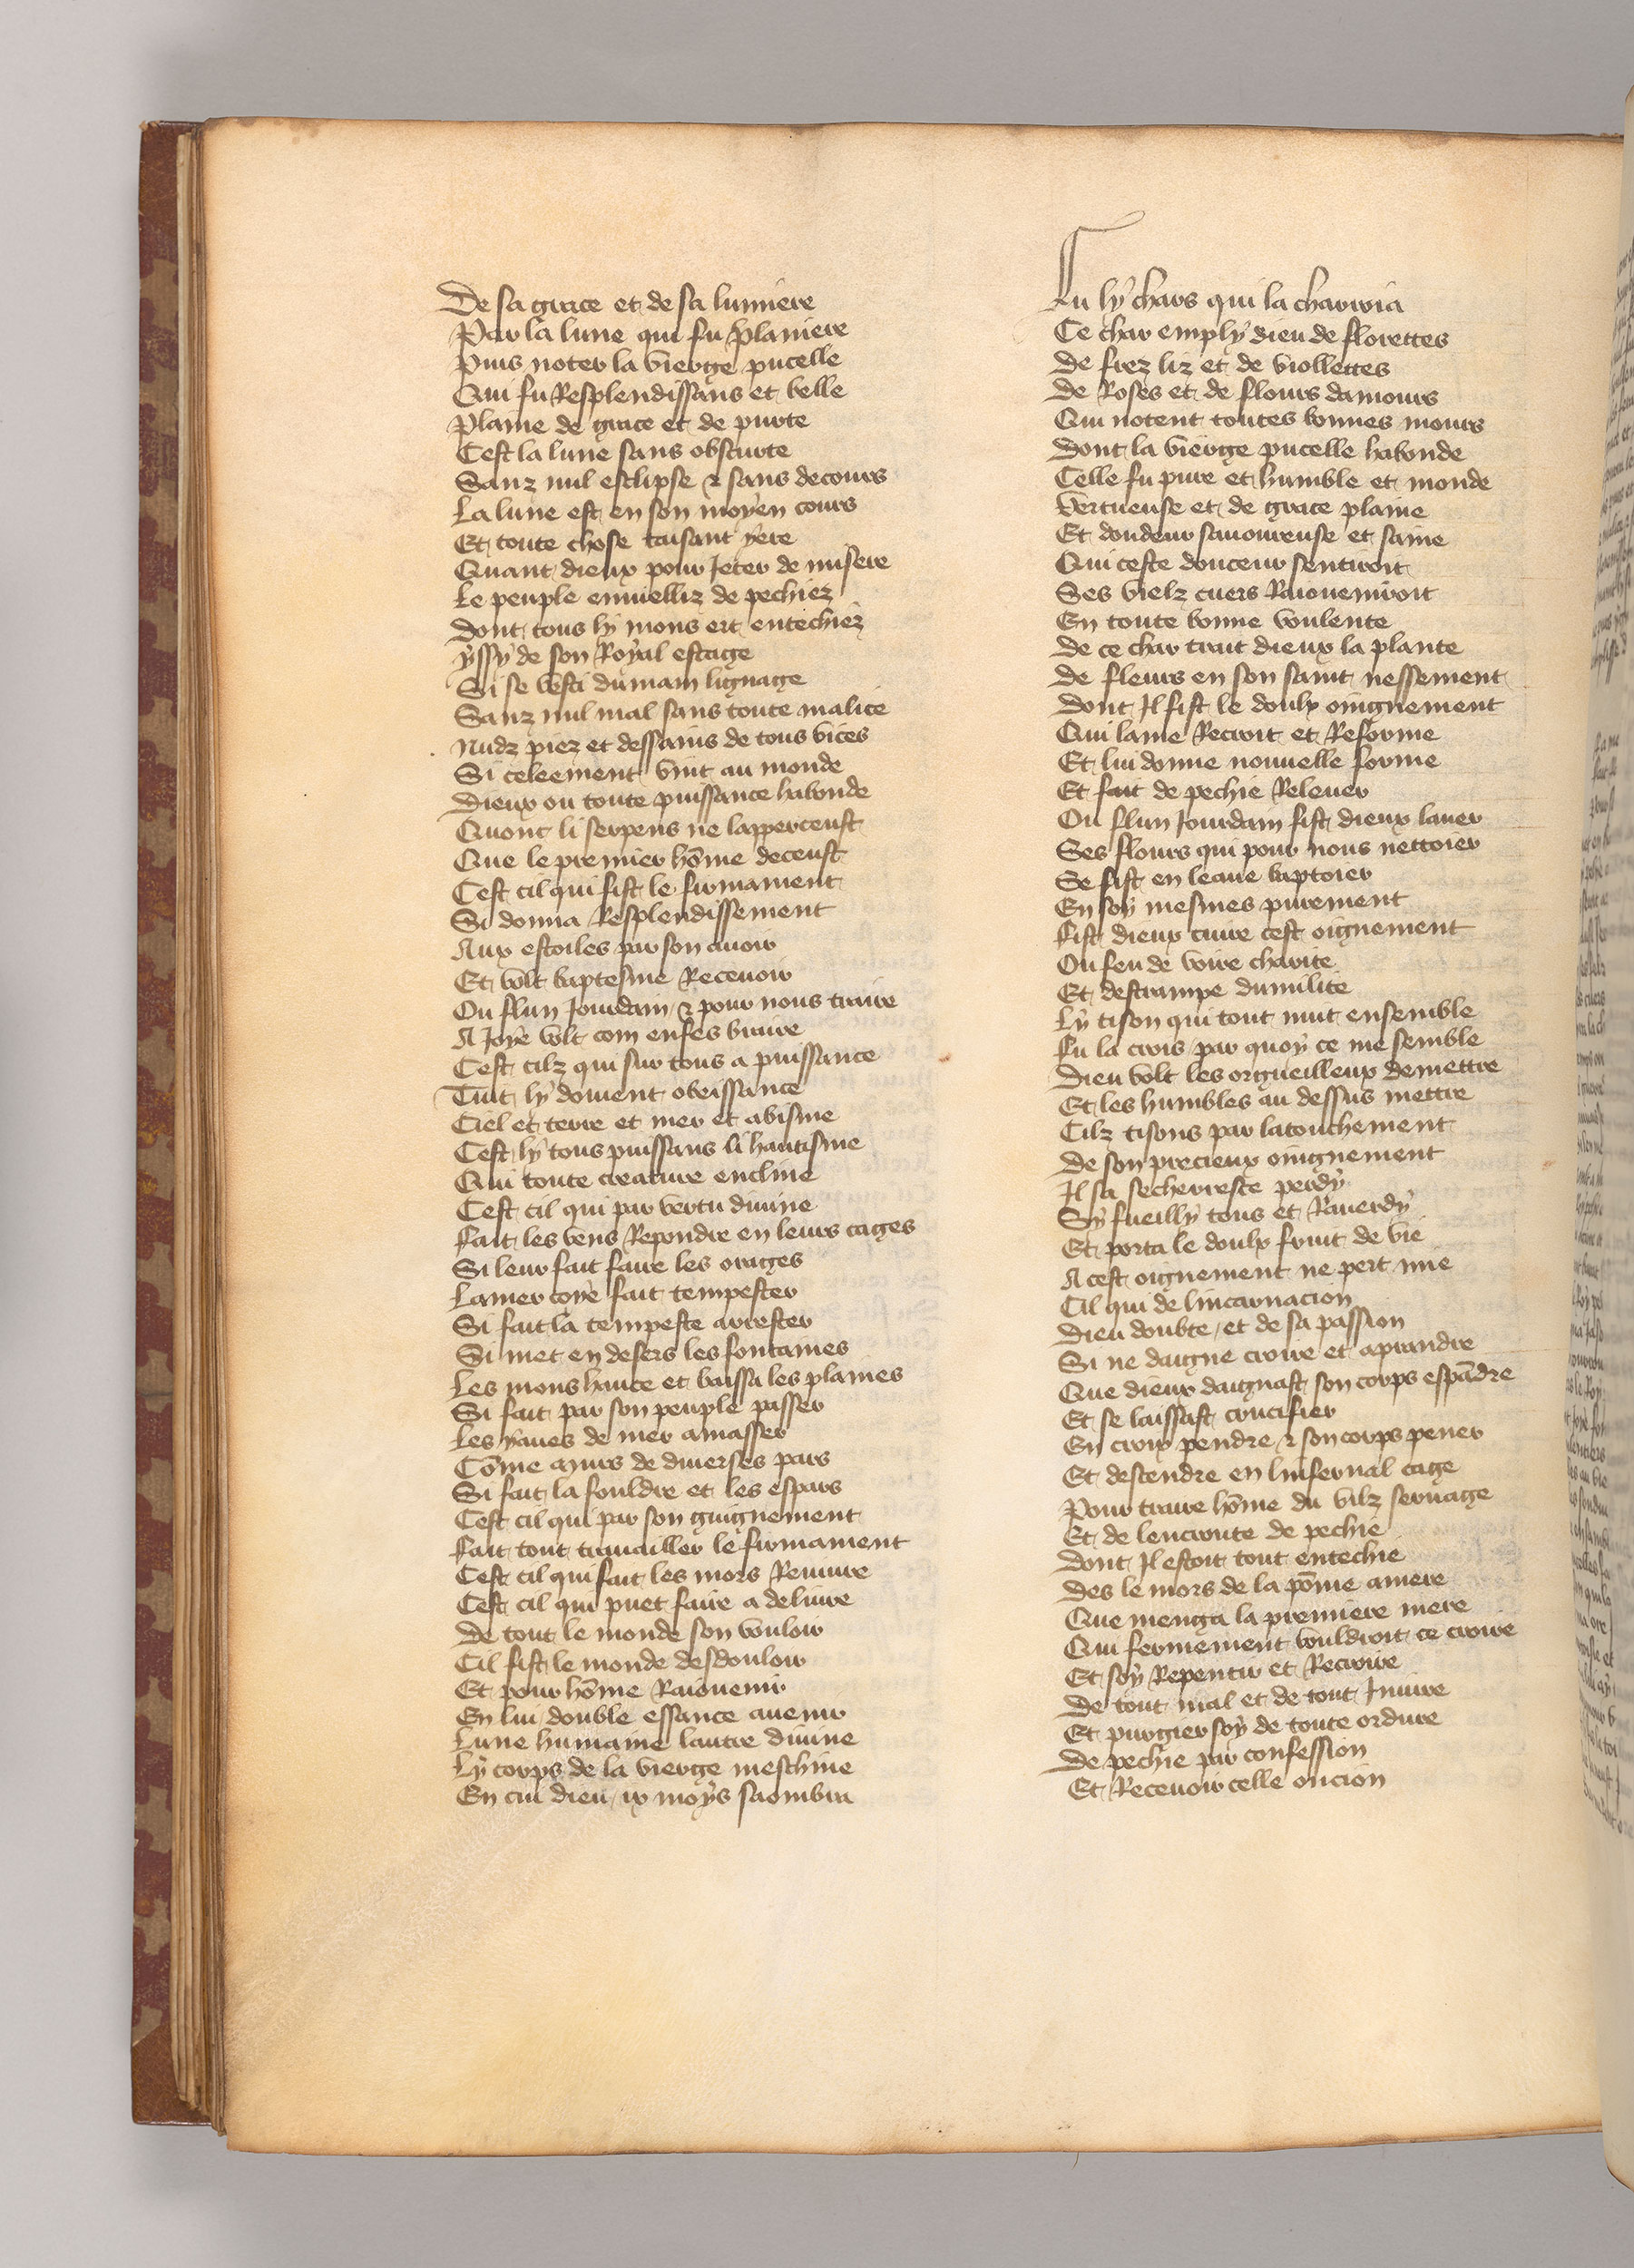 De sa grace et de sa lumiere
Par la lune qui fu planiere
Puis noter la vierge pucelle
Qui fu Resplendissans et belle
Plaine de grace et de purte
Cest la lune sans obscurte
Sanz nul esclipse & sans decours
La lune est en son moyen cours
Et toute chose taisant yere
Quant dieux pour Jeter de misere
Le peuple enuielliz de pechiez
Dont tous ly mons ert entechiez
yssy de son Royal estage
Si se vesti dumain lignage
Sanz nul mal sans toute malice
Nudz piez et dessains de tous vices
Si celeement vint au monde
Dieux ou toute puissance habonde
Quonc li serpens ne lapperceust
Que le premier hōme deceust
Cest cil qui fist le firmament
Si donna Resplendissement
Aux estoiles par son auoir
Et volt baptesme Receuoir
Ou flun Jourdain & pour nous traire
A Joye volt com enfes braire
Cest cilz qui sur tous a puissance
Tuit ly doiuent obeissance
Ciel et terre et mer et abisme
Cest ly tous puissans li hautisme
Qui toute creature encline
Cest cil qui par vertu diuine
Fait les vens Repondre en leurs cages
Si leur fait faire les orages
Lamer coye fait tempester
Si fait la tempeste arrester
Si met en desers les fontaines
Les mons hauce et baissa les plaines
Si fait par son peuple passer
Les yaues de mer amasser
Cōme a murs de diuerses pars
Si fait la fouldre et les espars
Cest cil qui par son guignement
Fait tout trauailler le firmament
Cest cil qui fait les mors Reuiure
Cest cil qui puet faire a deliure
De tout le monde son vouloir
Cil fist le monde desdouloir
Et pour hōme Raiouenir
En lui double essance auenir
Lune humaine lautre diuine
Ly corps de la vierge meschine
En cui dieu ix moys saombra
Fu ly chars qui la charroia
Ce char emply dieu de florettes
De frez liz et de viollettes
De Roses et de flours damours
Qui notent toutes bonnes mours
Dont la vierge pucelle habonde
Celle fu pure et humble et monde
Vertueuse et de grace plaine
Et doudeur sauoureuse et saine
Qui ceste douceur sentiroit
Ses vielz cuers Raioueniroit
En toute bonne voulente
De ce char trait dieux la plante
De fleurs en son saint nessement
Dont Il fist le doulx oingnement
Qui lame Recroit et Reforme
Et lui donne nouuelle forme
Et fait de pechie Releuer
Ou flun Jourdain fist dieux lauer
Ses flours qui pour nous nettoier
Se fist en leaue baptoier
En soy mesmes purement
Fist dieux cuire cest oignement
Ou feu de voire charite
Et destrampe dumilite
Ly tison qui tout mut ensemble
Fu la crois par quoy ce me semble
Dieu volt les orgueilleux demettre
Et les humbles au dessus mettre
Cilz tisons par latouchement
De son precieux oingnement
Il sa secherreste perdy
Sy fueilly tous et Rauerdy
Et porta le doulx fruit de vie
A cest oignement ne pert mie
Cil qui de lincarnacion
Dieu doubte / et de sa passion
Si ne daigne croire et aprandre
Que dieux daignast son corps espādre
Et se laissast crucifier
En croix pendre & son corps pener
Et descendre en linfernal cage
Pour traire hōme du vilz seruage
Et de lencroute de pechie
Dont Il estoit tout entechie
Des le mors de la pōme amere
Que menga la premiere mere
Qui fermement vouldroit ce croire
Et soy Repentir et Recroire
De tout mal et de tout Iniure
Et purgier soy de toute ordure
De pechie par confession
Et Receuoir celle oncion